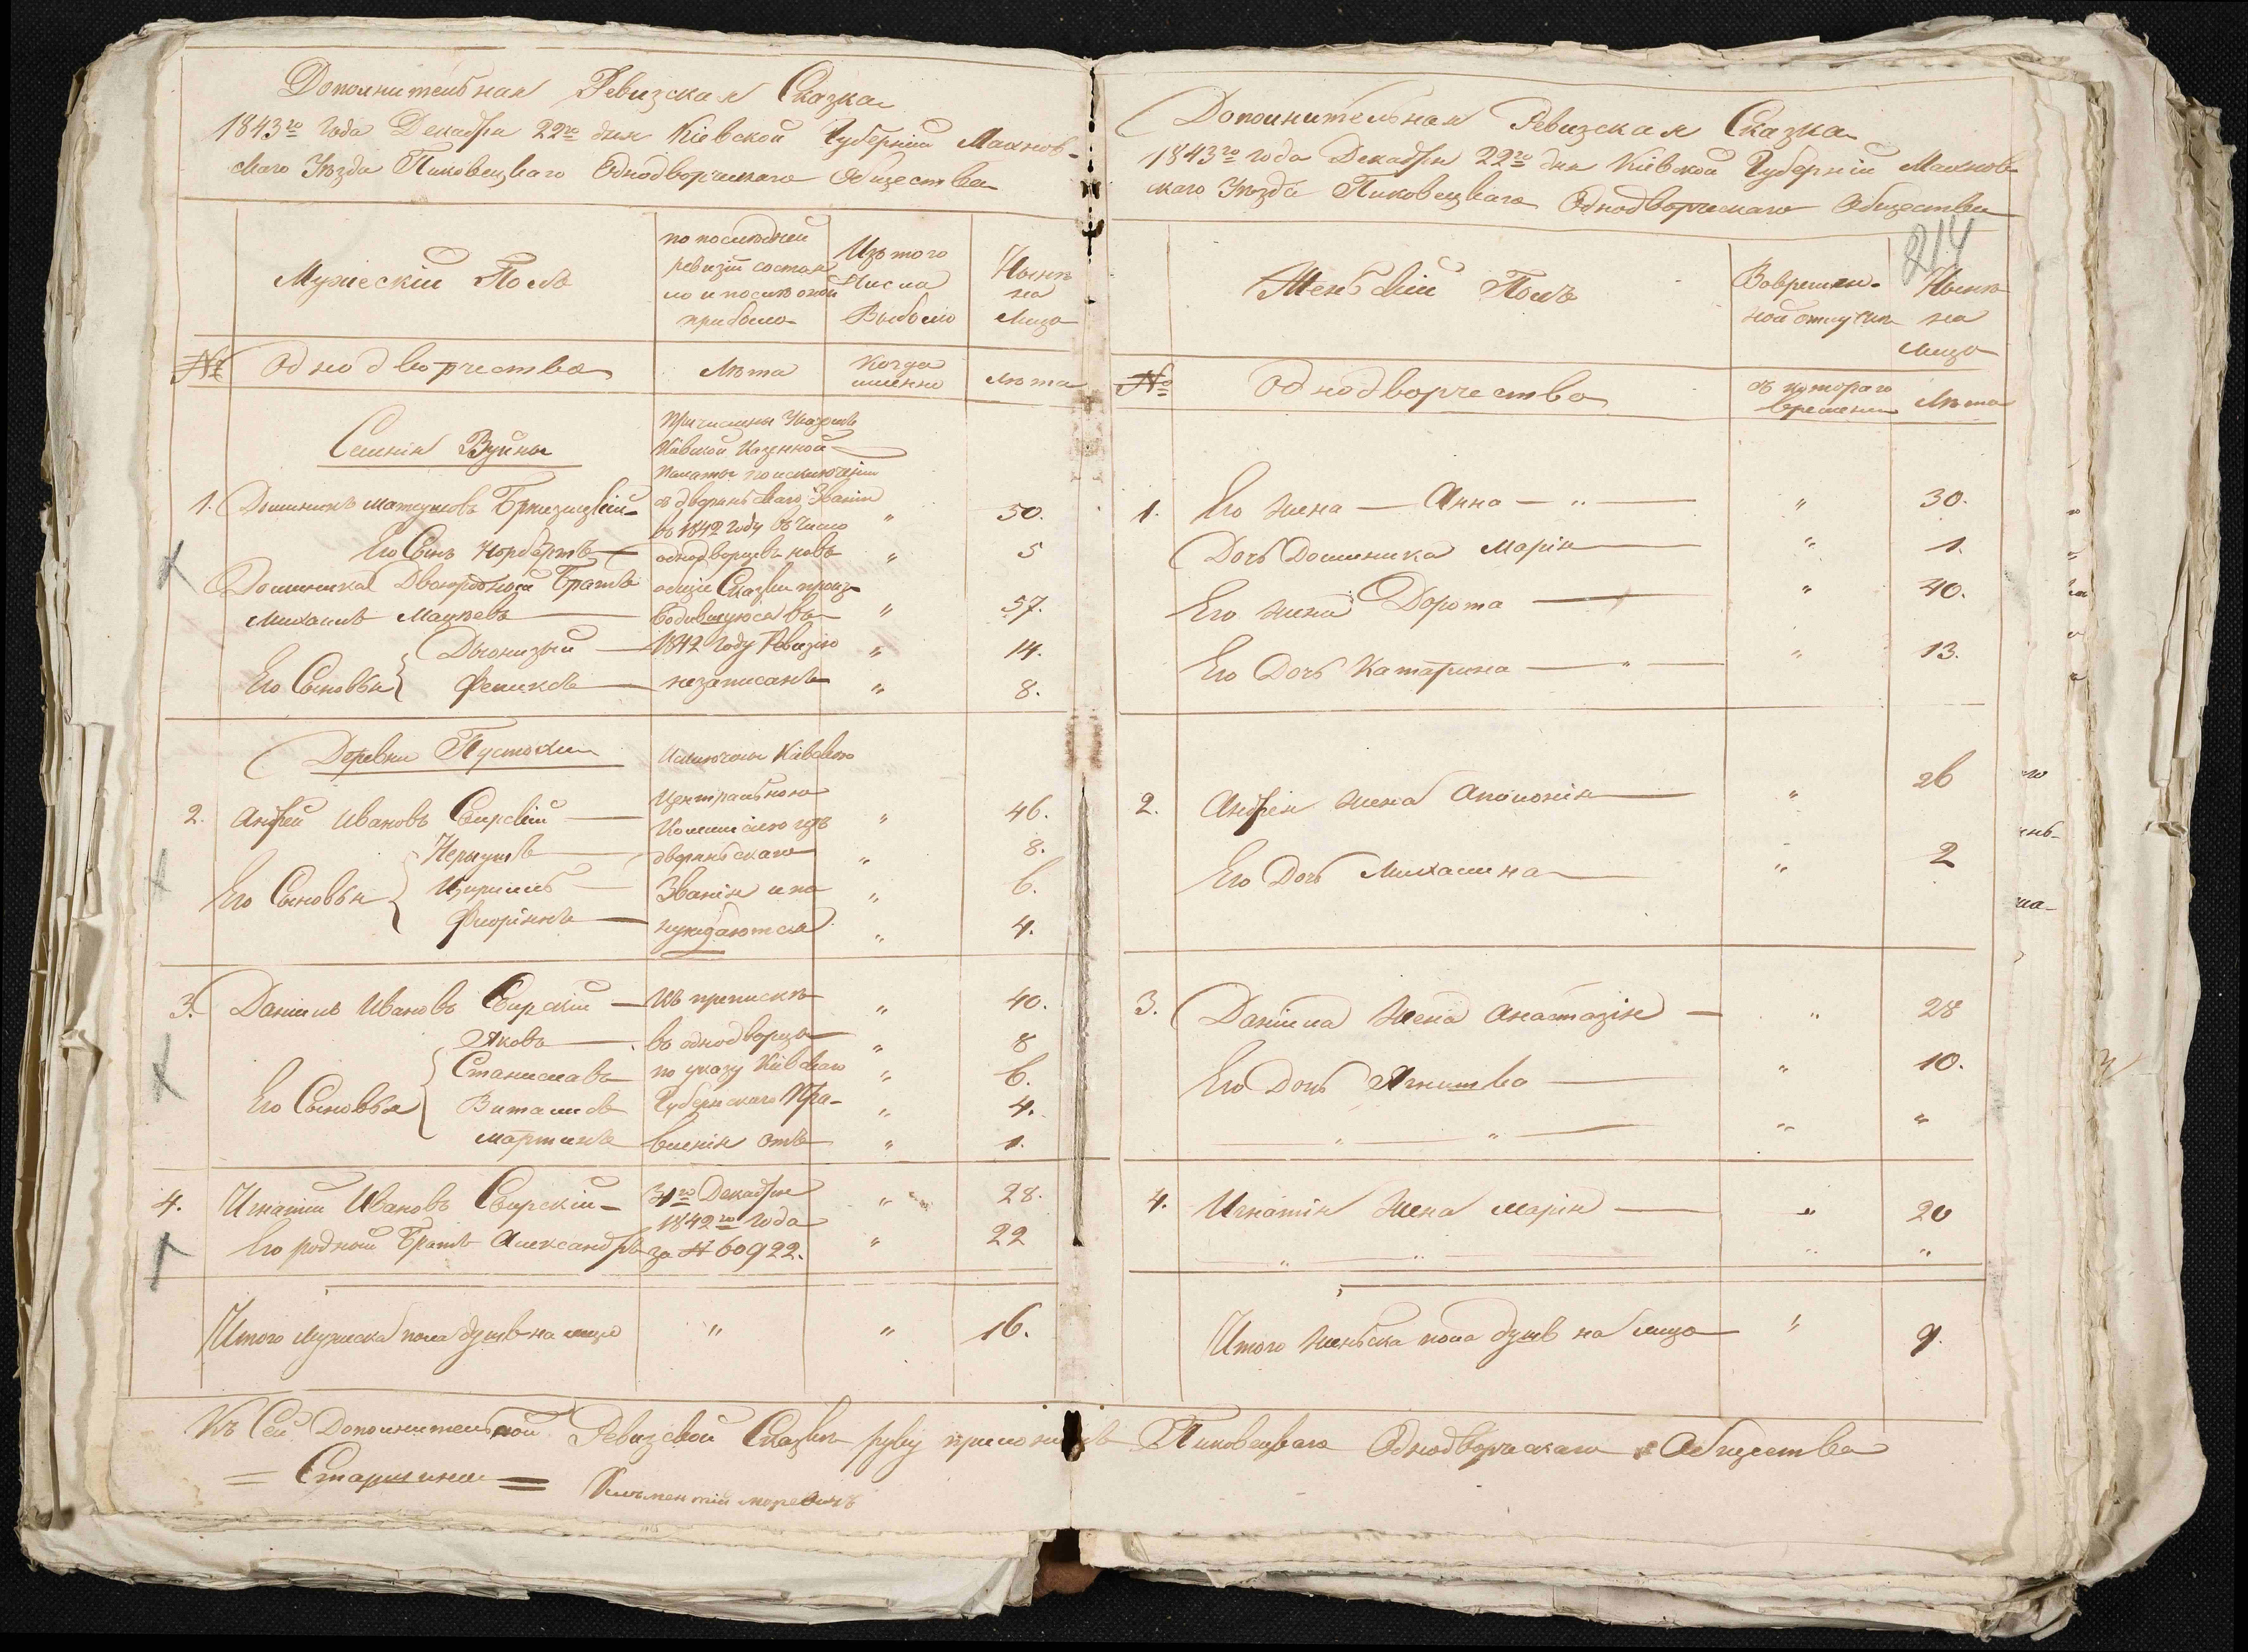 Дополнительная Ревизская Сказка
1843го Года Декабря 22го дня Кіевской Губерніи Махнов-
скаго Уѣзда Пиковецкаго Однодворческаго Общества
Мужескій Полъ
по последней
ревизіи состоя
ло и после оной
прибыло
Изъ того
Числа
Выбыло
Нынѣ
на
Лицо
№
Однодворчества
Лѣта
Когда
именно
Лѣта
Селенія Вуйны
Причислены Указомъ
Кіевской Казенной
Палаты по исключеніи
съ дворянскаго Званія
въ 1842 Году въ Число
однодворцевъ но въ
общіе Сказки произ-
водившуюся въ
1842 Году Ревизію
незаписанъ
1. Доминикъ Матеушовъ " 50.
Его Сынъ Норбертъ " 5
Доминика Двоюродной Братъ
Михаилъ Мацѣевъ " 57.
Его Сыновья { Діонизый " 14.
Феликсъ " 8.
Деревни Пустохи
Исключены Кіевскою
Центральною
Коммисіею изъ
дворянскаго
Званія и по
нуждаются
2. Андрей Ивановъ Свирскій " 46.
8.
Его Сыновья { Кирилъ " 6.
Флоріянъ " 4.
3. Даніилъ Ивановъ Свирскій — къ приписке " 40.
Яковъ — въ однодворцы " 8
Его Сыновья { Станиславъ по указу Кіевскаго " 6.
Виталисъ Губернскаго Пра- " 4.
Мартинъ вленія отъ " 1.
4. Игнатій Ивановъ Свирскій — 31го Декабря " 28.
1842го Года
Его родной Братъ Александръ за № 60922. " 22
Итого Мужеска пола душъ на лицо " " 16.
Къ Сей Дополнительной Ревизской Сказки руку приложилъ Пиковецкаго Однодворческаго Общества
= Старшина =
Дополнительная Ревизская Сказка
1843го года Декабря 22го дня Кіевской Губерніи Махнов-
скаго Уѣзда Пиковецкаго Однодворческаго Общества
214
Женскій Полъ
Во времен-
ной отлучкѣ
Нынѣ
на
лицо
№
Однодворчества
съ котораго
времени
Лѣта
1. Его жена — Анна — " — " 30.
Дочь Доминика Марія " 1.
Его жена Дорота " 40.
Его Дочь Катарина — " — " 13.
2. Андрея жена Аполонія " 26
Его Дочь Михалина " 2
3. Даніила Жена Анастазія " 28
Его Дочь " 10.
" " " "
4. Игнатія Жена Марія " 20
" " " "
Итого женска пола душъ на лицо " 9.